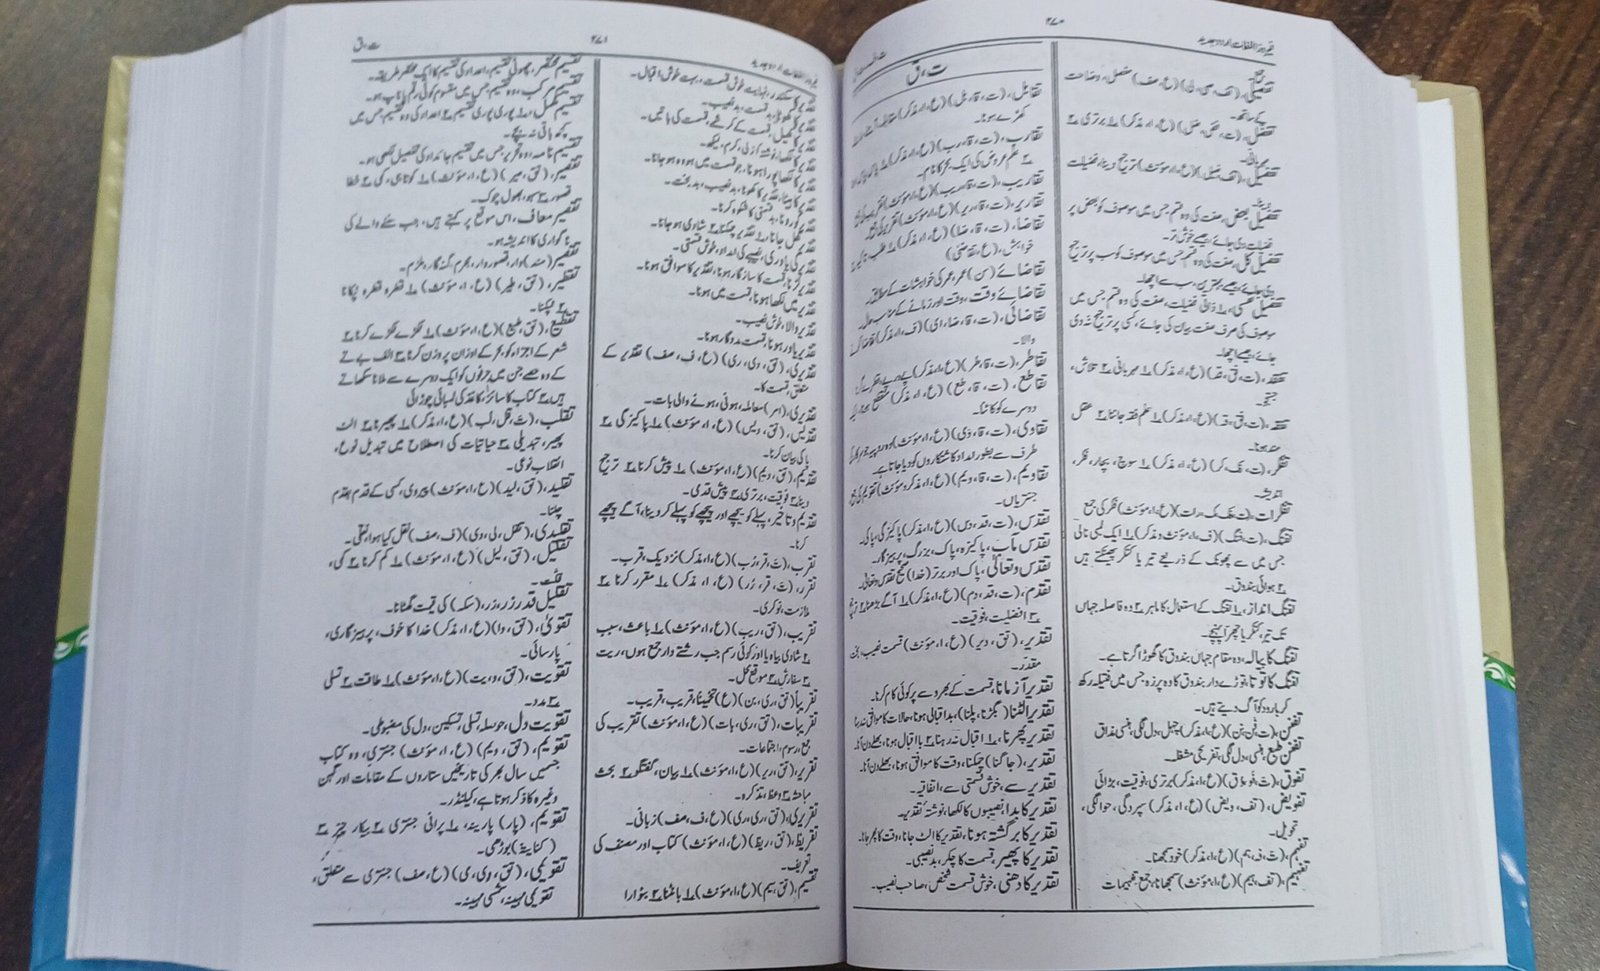 فیروز اللغات اردو جدید
۲۷۰
تفضل، (ت، فض، ضل) (ع، ا، مذکر) ۱ برتری ۲
مہربانی۔
تفضیل، (تف، ضیل) (ع، ا، مؤنث) ترجیح دینا، فضیلت
تفضیل بعض، صفت کی وہ قسم جس میں موصوف کو بعض پر
فضیلت دی جائے، جیسے خوش تر۔
تفضیل کل، صفت کی وہ قسم جس میں موصوف کو سب پر ترجیح
دی جائے، جیسے بہترین، سب سے اچھا۔
تفضیل نفسی، ۱ ذاتی فضیلت، صفت کی وہ قسم جس میں
موصوف کی صرف صفت بیان کی جائے، کسی پر ترجیح نہ دی
جائے، جیسے اچھا۔
تفقد، (ت، فق، قد) (ع، ا، مذکر) ۱ مہربانی ۲ تلاش،
تفقہ، (ت، فق، قہ) (ع، ا، مذکر) ۱ علم فقہ جاننا ۲ عقل
مند ہونا۔
تفکر، (ت، فک، کر) (ع، ا، مذکر) ۱ سوچ، بچار، فکر،
اندیشہ۔
تفکرات، (ت، فک، ک، رات) (ع، ا، مؤنث) تفکر کی جمع
تفنگ، (ت، فنگ) (ف، ا، مؤنث و مذکر) ۱ ایک لمبی نالی
جس میں سے پھونک کے ذریعے تیر یا کنکر پھینکتے ہیں
۲ ہوائی بندوق۔
تفنگ انداز، ۱ تفنگ کے استعمال کا ماہر ۲ وہ فاصلہ جہاں
تک تیر، کنکر یا چھرا پہنچے۔
تفنگ کا پیالہ، وہ مقام جہاں بندوق کا گھوڑا گرتا ہے۔
تفنگ کا توتا، توڑے دار بندوق کا وہ پرزہ جس میں فتیلہ رکھ
کر بارود کو آگ دیتے ہیں۔
تفنن، (ت، فن، نن) (ع، ا، مذکر) چہل، دل لگی، ہنسی مذاق
تفنن طبع، ہنسی، دل لگی، تفریحی مشغلہ۔
تفوق، (ت، فو، وق) (ع، ا، مذکر) برتری، فوقیت، بڑائی
تفویض، (تف، ویض) (ع، ا، مذکر) سپردگی، حوالگی،
تحویل۔
تفہم، (ت، ف، ہم) (ع، ا، مذکر) خود سمجھنا۔
تفہیم، (تف، ہیم) (ع، ا، مؤنث) سمجھانا، جمع تفہیمات
ت ۔ ق
کھڑے ہونا۔
تقارب، (ت، قا، رب) (ع، ا، مذکر)
۲ علم عروض کی ایک بحر کا نام۔
تقاریب، (ت، قا، ریب) (ع، ا، مؤنث) تقریب کی جمع
تقاریر، (ت، قا، ریر) (ع، ا، مؤنث) تقریر کی جمع
تقاضا، (ت، قا، ضا) (ع، ا، مذکر) ۱ طلب، تاکید
خواہش، (ع، تقاضی)
تقاضائے (سن) عمر، عمر کی خواہشات کے مطابق۔
تقاضائے وقت، وقت اور زمانے کے مناسب حال۔
تقاضائی، (ت، قا، ضا، ای) (ف، ا، مذکر) تقاضا کرنے
والا۔
تقاطر، (ت، قا، طر) (ع، ا، مذکر)
تقاطع، (ت، قا، طع) (ع، ا، مذکر)
دوسرے کو کاٹنا۔
تقاوی، (ت، قا، وی) (ع، ا، مؤنث) وہ روپیہ جو
طرف سے بطور امداد کاشتکاروں کو دیا جاتا ہے۔
تقاویم، (ت، قا، ویم) (ع، ا، مذکر و مؤنث) تقویم کی جمع
جنتریاں۔
تقدس، (ت، قد، دس) (ع، ا، مذکر) پاکیزگی، پاکی۔
تقدس مآب، پاکیزہ، پاک، بزرگ، پرہیزگار۔
تقدس و تعالیٰ، پاک اور برتر (خدا) صحیح تقدس و تعالیٰ۔
تقدم، (ت، قد، دم) (ع، ا، مذکر) ۱ آگے بڑھنا
۲ افضلیت، فوقیت۔
تقدیر، (تق، دیر) (ع، ا، مؤنث) قسمت، نصیب،
مقدر۔
تقدیر آزمانا، قسمت کے بھروسے پر کوئی کام کرنا۔
تقدیر الٹنا (بگڑنا، پلٹنا)، بد اقبالی ہونا، حالات کا موافق نہ رہنا
تقدیر پھرنا، ۱ اقبال نہ رہنا ۲ با اقبال ہونا، بھلے دن آنا۔
تقدیر، (جاگنا) چمکنا، وقت کا موافق ہونا، بھلے دن آنا۔
تقدیر سے، خوش قسمتی سے، اتفاقیہ۔
تقدیر کا بدا، نصیبوں کا لکھا، نوشتہ تقدیر۔
تقدیر کا برگشتہ ہونا، تقدیر کا الٹ جانا، وقت کا پھر جانا۔
تقدیر کا پھیر، قسمت کا چکر، بد نصیبی۔
تقدیر کا دھنی، خوش قسمت شخص، صاحب نصیب۔
فیروز اللغات اردو جدید
۲۷۱
ت ۔ ق
تقدیر کا سکندر، نہایت خوش قسمت، بہت خوش اقبال۔
تقدیر کا کھوٹا، بد قسمت، بد نصیب۔
تقدیر کا کھیل، قسمت کے کرشمے، قسمت کی باتیں۔
تقدیر کا لکھا، نوشتہ ازلی، کرم، لیکھ۔
تقدیر کا لکھا پورا ہونا، جو قسمت میں ہو وہ ہو جانا۔
تقدیر کا ہیٹا، تقدیر کا کھوٹا، بد نصیب، بد بخت۔
تقدیر کو رونا، بد قسمتی کا شکوہ کرنا۔
تقدیر کھل جانا، ۱ تقدیر چمکنا ۲ شادی ہو جانا۔
تقدیر کی یاوری، نصیبے کی امداد، خوش قسمتی۔
تقدیر لڑنا، قسمت کا سازگار ہونا، تقدیر کا موافق ہونا۔
تقدیر میں لکھا ہونا، قسمت میں ہونا۔
تقدیر والا، خوش نصیب۔
تقدیر یاور ہونا، قسمت مددگار ہونا۔
تقدیری، (تق، دی، ری) (ع، ف، صف) تقدیر کے
متعلق، قسمت کا۔
تقدیری، (امر) معاملہ، ہونی، ہونے والی بات۔
تقدیس، (تق، دیس) (ع، ا، مؤنث) ۱ پاکیزگی ۲
پاکی بیان کرنا۔
تقدیم، (تق، دیم) (ع، ا، مؤنث) ۱ پیش کرنا ۲ ترجیح
دینا ۳ فوقیت، برتری ۴ پیش قدمی۔
تقدیم و تاخیر، پہلے کو پیچھے اور پیچھے کو پہلے کر دینا، آگے پیچھے
کرنا۔
تقرب، (ت، قر، رب) (ع، ا، مذکر) نزدیک، قرب۔
تقرر، (ت، قر، رر) (ع، ا، مذکر) ۱ مقرر کرنا ۲
ملازمت، نوکری۔
تقریب، (تق، ریب) (ع، ا، مؤنث) ۱ باعث، سبب
۲ شادی بیاہ یا اور کوئی رسم جب رشتے دار جمع ہوں، ریت
۳ سفارش ۴ موقع محل۔
تقریباً، (تق، ری، بن) (ع) تخمیناً، قریب، قریب۔
تقریبات، (تق، ری، بات) (ع، ا، مؤنث) تقریب کی
جمع، رسوم، اجتماعات۔
تقریر، (تق، ریر) (ع، ا، مؤنث) ۱ بیان، گفتگو ۲ بحث
مباحثہ ۳ وعظ، تذکرہ۔
تقریری، (تق، ری، ری) (ع، ف، صف) زبانی۔
تقریظ، (تق، ریظ) (ع، ا، مؤنث) کتاب اور مصنف کی
تعریف۔
تقسیم، (تق، سیم) (ع، ا، مؤنث) ۱ بانٹنا ۲ بٹوارا
تقسیم مختصر، چھوٹی تقسیم، اعداد کی تقسیم کا ایک مختصر طریقہ۔
تقسیم مرکب، وہ تقسیم جس میں مقسوم کوئی رقم یا ناپ ہو۔
تقسیم مکمل، ۱ پوری پوری تقسیم ۲ اعداد کی وہ تقسیم جس میں
کچھ باقی نہ بچے۔
تقسیم نامہ، وہ تحریر جس میں تقسیم جائداد کی تفصیل لکھی ہو۔
تقصیر، (تق، صیر) (ع، ا، مؤنث) ۱ کوتاہی، کمی ۲ خطا
قصور ۳ سہو، بھول چوک۔
تقصیر معاف، اس موقع پر کہتے ہیں، جب سننے والے کی
ناگواری کا اندیشہ ہو۔
تقصیر (مند) وار، قصوروار، مجرم، گنہگار، ملزم۔
تقطیر، (تق، طیر) (ع، ا، مؤنث) ۱ قطرہ قطرہ ٹپکانا
۲ ٹپکنا۔
تقطیع، (تق، طیع) (ع، ا، مؤنث) ۱ ٹکڑے ٹکڑے کرنا ۲
شعر کے اجزاء کو بحر کے اوزان پر وزن کرنا ۳ الف بے تے
کے وہ حصے جن میں حرفوں کو ایک دوسرے سے ملانا سکھاتے
ہیں ۴ کتاب کا سائز، کاغذ کی لمبائی چوڑائی
تقلب، (ت، قل، لب) (ع، ا، مذکر) ۱ پھیرنا ۲ الٹ
پھیر، تبدیلی ۳ حیاتیات کی اصطلاح میں تبدیل نوع،
انقلاب نوعی۔
تقلید، (تق، لید) (ع، ا، مؤنث) پیروی، کسی کے قدم بقدم
چلنا۔
تقلیدی، (تق، لی، دی) (ف، صف) نقل کیا ہوا، نقلی۔
تقلیل، (تق، لیل) (ع، ا، مؤنث) ۱ کم کرنا ۲ کمی،
قلت۔
تقلیل قدر زر، زر، (سکہ) کی قیمت گھٹانا۔
تقویٰ، (تق، وا) (ع، ا، مذکر) خدا کا خوف، پرہیزگاری،
پارسائی۔
تقویت، (تق، و، یت) (ع، ا، مؤنث) ۱ طاقت ۲ تسلی
۳ مدد۔
تقویت دل، حوصلہ، تسلی، تسکین، دل کی مضبوطی۔
تقویم، (تق، ویم) (ع، ا، مؤنث) جنتری، وہ کتاب
جسمیں سال بھر کی تاریخیں ستاروں کے مقامات اور گہن
وغیرہ کا ذکر ہوتا ہے، کیلنڈر۔
تقویم، (پار) پارینہ، ۱ پرانی جنتری ۲ بیکار چیز ۳
(کنایۃً) بوڑھی۔
تقویمی، (تق، وی، می) (ع، صف) جنتری سے متعلق،
تقویمی مہینہ، شمسی مہینہ۔